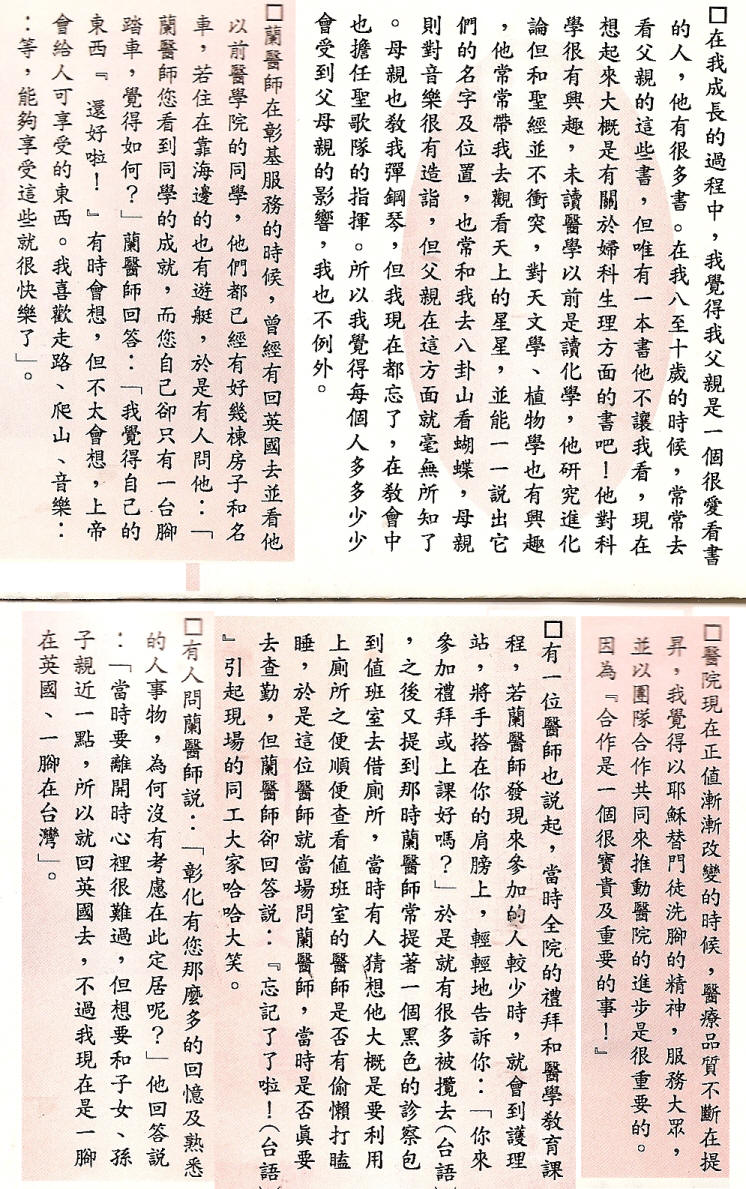 □在我成長的過程中，我覺得我父親是一個很愛看書
的人，他有很多書。在我八至十歲的時候，常常去
看父親的這些書，但唯有一本書他不讓我看，現在
想起來大概是有關於婦科生理方面的書吧！他對科
學很有興趣，未讀醫學以前是讀化學，他研究進化
論但和聖經並不衝突，對天文學、植物學也有興趣
，他常常帶我去觀看天上的星星，並能一一說出它
們的名字及位置，也常和我去八卦山看蝴蝶，母親
則對音樂很有造詣，但父親在這方面就毫無所知了
。母親也教我彈鋼琴，但我現在都忘了，在教會中
也擔任聖歌隊的指揮。所以我覺得每個人多多少少
會受到父母親的影響，我也不例外。
□蘭醫師在彰基服務的時候，曾經有回英國去並看他
以前醫學院的同學，他們都已經有好幾棟房子和名
車，若住在靠海邊的也有遊艇，於是有人問他：「
蘭醫師您看到同學的成就，而您自己卻只有一台腳
踏車，覺得如何？」蘭醫師回答：「我覺得自己的
東西『還好啦！』有時會想，但不太會想，上帝
會給人可享受的東西。我喜歡走路、爬山、音樂：
：等，能夠享受這些就很快樂了」。
□醫院現在正值漸漸改變的時候，醫療品質不斷在提
昇，我覺得以耶穌替門徒洗腳的精神，服務大眾，
並以團隊合作共同來推動醫院的進步是很重要的。
因為『合作是一個很寶貴及重要的事！』
□有一位醫師也說起，當時全院的禮拜和醫學教育課
程，若蘭醫師發現來參加的人較少時，就會到護理
站，將手搭在你的肩膀上，輕輕地告訴你：「你來
參加禮拜或上課好嗎？」於是就有很多被攬去（台語）
，之後又提到那時蘭醫師常提著一個黑色的診察包
到值班室去借廁所，當時有人猜想他大概是要利用
上廁所之便順便查看值班室的醫師是否有偷懶打瞌
睡，於是這位醫師就當場問蘭醫師，當時是否真要
去查勤，但蘭醫師卻回答說：『忘記了了啦！（台語）
』引起現場的同工大家哈哈大笑。
□有人問蘭醫師說：「彰化有您那麼多的回憶及熟悉
的人事物，為何沒有考慮在此定居呢？」他回答說
：「當時要離開時心裡很難過，但想要和子女、孫
子親近一點，所以就回英國去，不過我現在是一腳
在英國、一腳在台灣」。